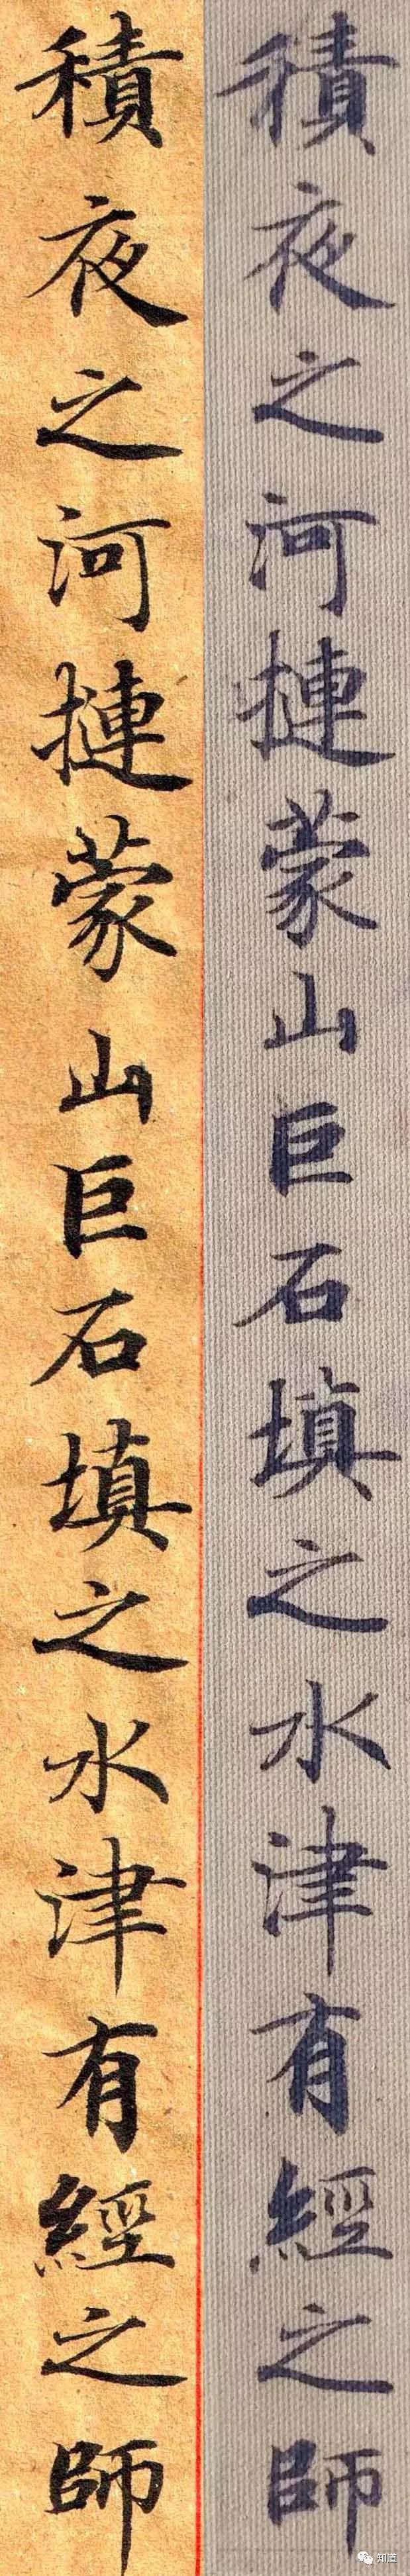 積夜之河摙蒙山巨石填之水津有經之師
積夜之河摙蒙山巨石填之水津有經之師
知道